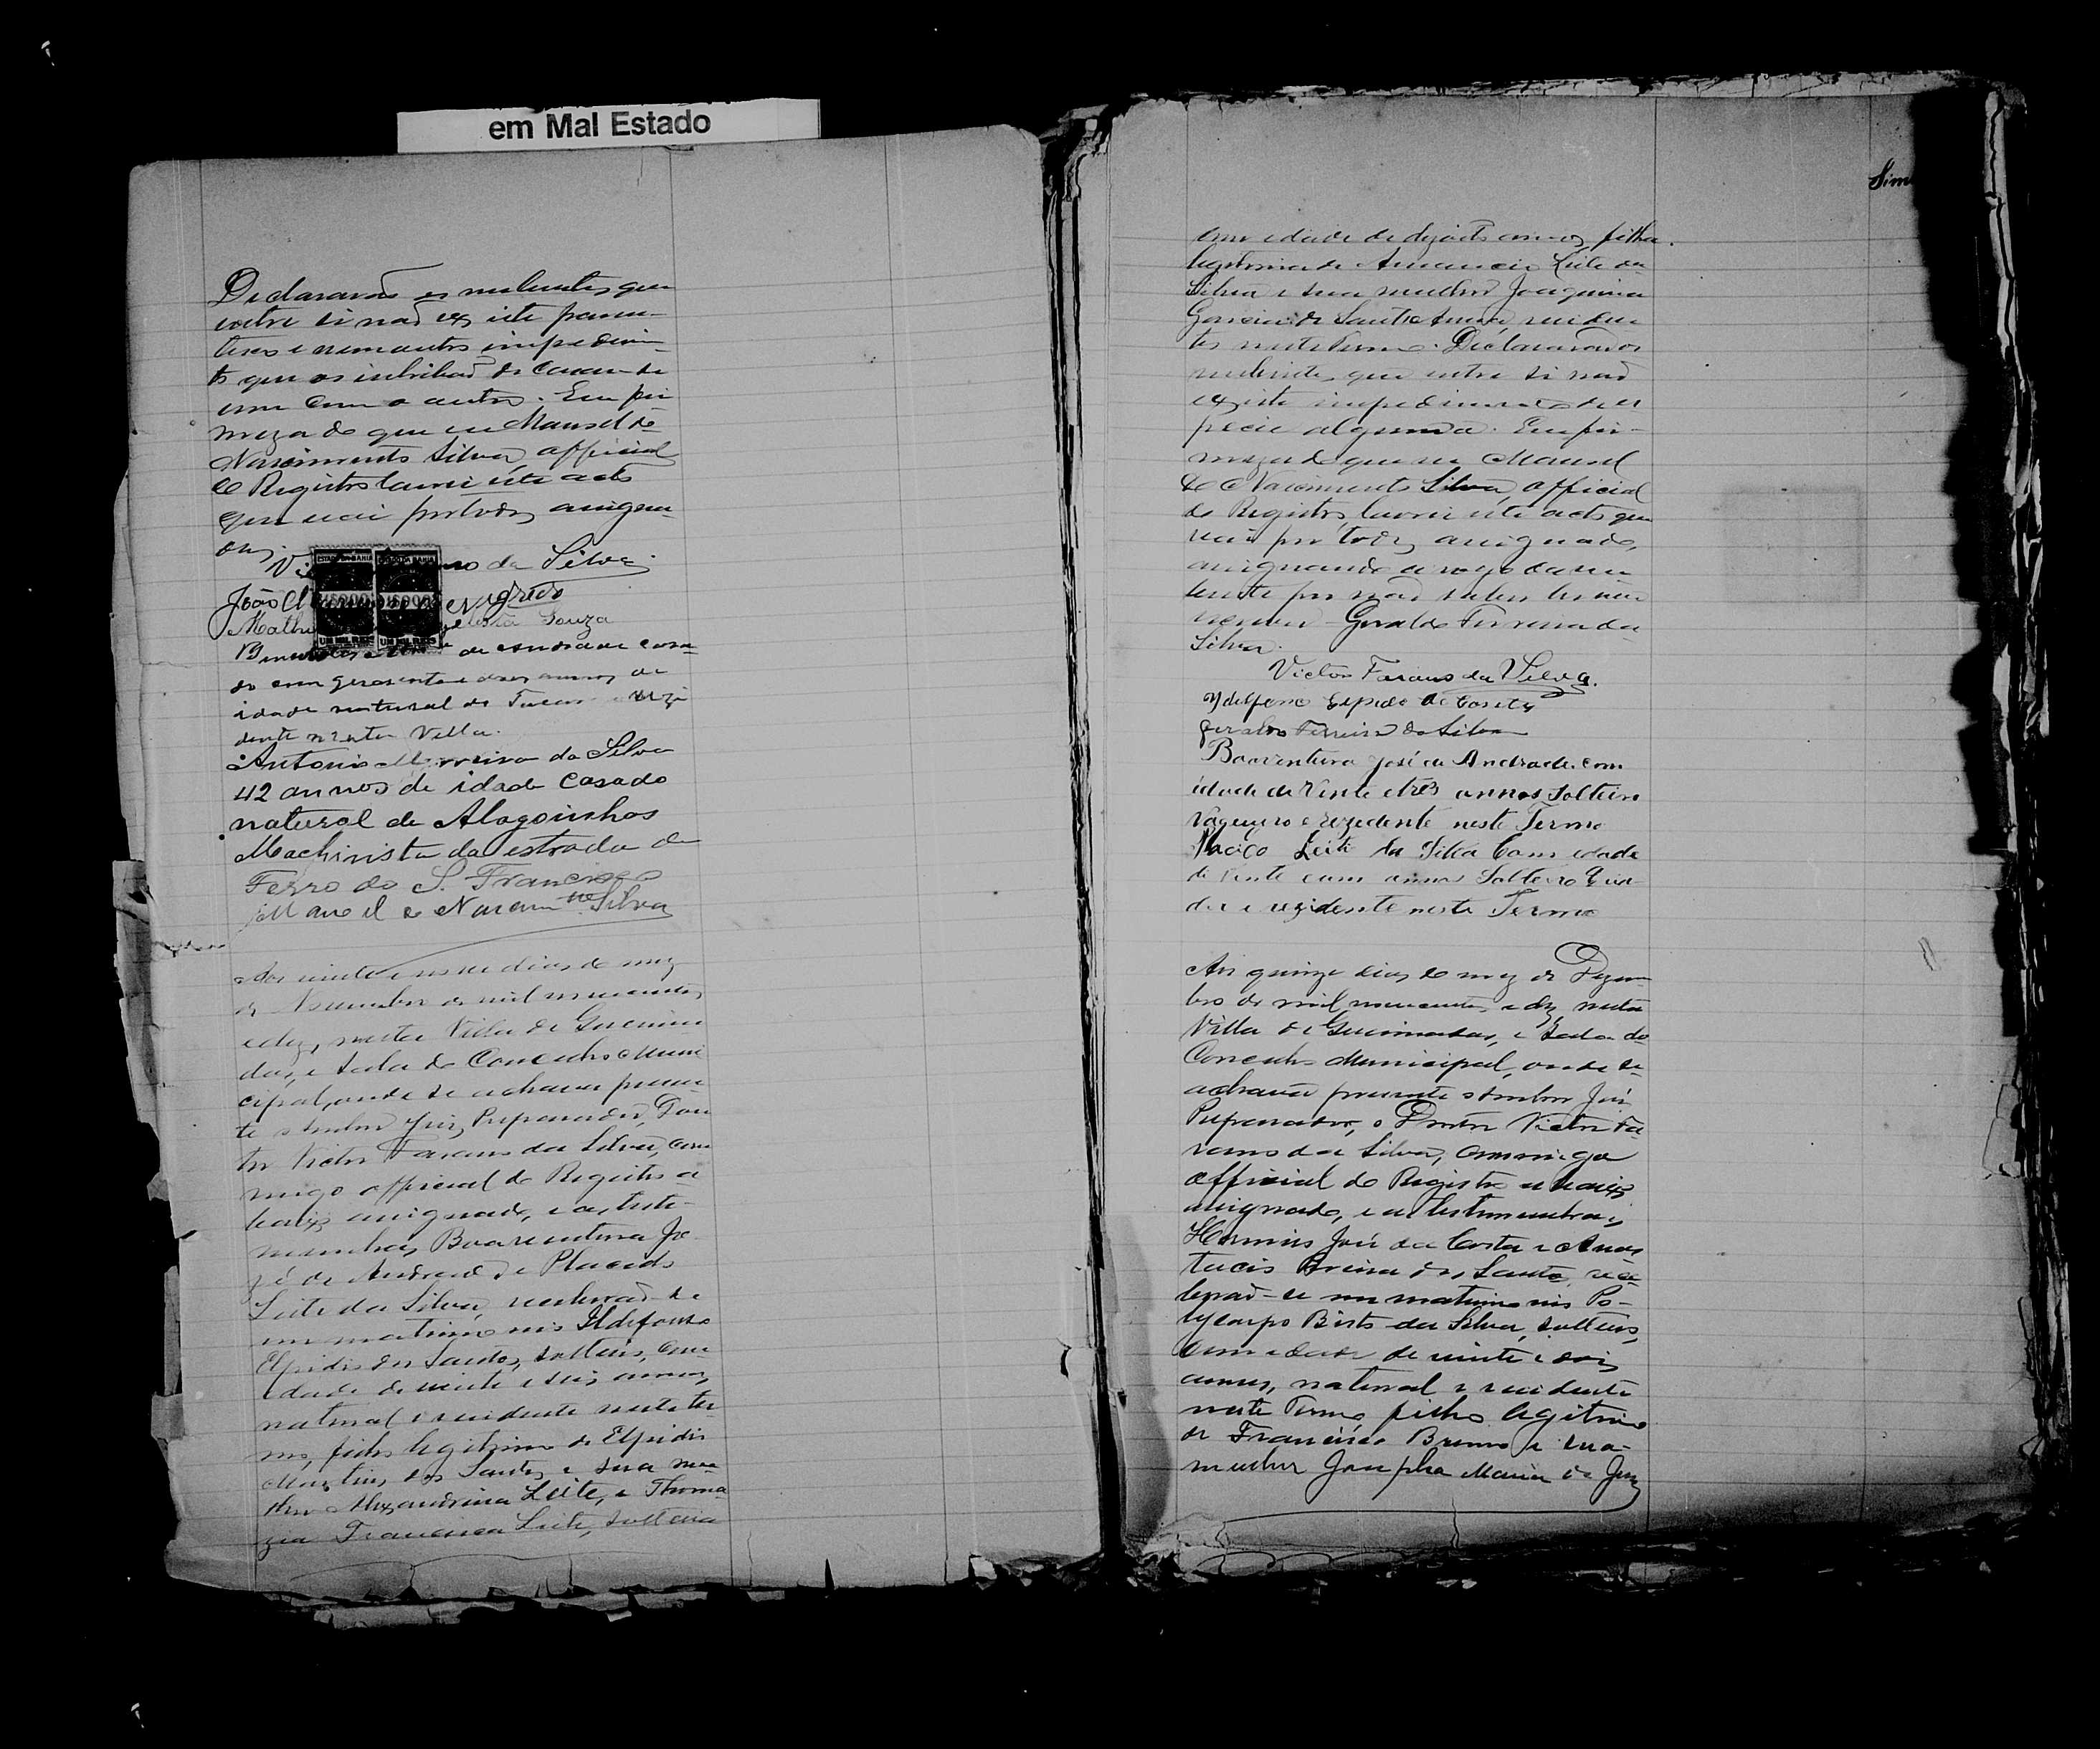 em Mal Estado
Declararão os nubentes que
entre si não existe paren-
tesco e nem outro impedimen-
to que os inhibão de casar-se
um com o outro. Em fir-
meza do que eu Manoel do
Nascimento Silva, official
do Registro lavrei este acto
que vai por todos assigna-
do.
da Silva
João
Souza
de Andrade casa-
do com secenta e annos de
idade natural de Tucano e rezi
dente n'esta Villa.
Antonio Moreira da Silva
42 annos de idade casado
natural de Alagoinhas
Machinista da estrada de
Ferro do S. Francisco
Manoel do Nascimto Silva
Aos vinte e nove dias do mez
de Novembro de mil novecentos
e dez, nesta Villa de Queima
das, e Sala do Conselho Muni
cipal, onde se achava presen-
te o Senhor Juiz Preparador, Dou
tor Victor Farano da Silva, com
migo official do Registro a
baixo assignado, e as teste-
munhas, Boaventura Jo
zé de Andrade e Placido
Leite da Silva, receberão-se
em matrimonio Ildefonso
Elpidio dos Santos, solteiro, com
idade de vinte e seis annos,
natural e residente neste ter-
mo, filho legitimo de Elpidio
Martins dos Santos e sua mu
lher Alexandrina Leite, e Thoma
zia Francisca Leite, solteira
Sim
com idade de dezoito annos, filha
legitima de Amancio Leite da
Silva e sua mulher Joaquina
Garcia de Sant'Anna, residen
tes neste Termo. Declararão os
nubentes, que entre si não
existe impedimento de es
pecie alguma. Em fir-
meza do que eu Manoel
do Nascimento Silva, official
do Registro lavrei este acto que
vai por todos assignado,
assignando a rogo da nu
bente por não saber ler nem
escrever Geraldo Ferreira da
Silva.
Victor Farano da Silva.
Yldefonso Elpidio da Costa
Geraldo Ferreira da Silva
Boaventura José de Andrade. com
idade de Vinte e três annos Solteiro
Vaqueiro e rezidente neste Termo
Leite da Silva Com idade
de vinte e um annos Solteiro Cria
dor e rezidente neste Termo
Aos quinze dias do mez de Dezem
bro de mil novecentos e dez, nesta
Villa de Queimadas, e Sala do
Conselho Municipal, onde se
achava presente o Senhor Juiz
Preparador, o Doutor Victor Fa-
rano da Silva, commigo
official do Registro abaixo
assignado, e as testemunhas,
Herminio José da Costa e Anas
tacio Pereira dos Santos, rece
berão-se em matrimonio Po-
lycarpo Bispo da Silva, solteiro,
com idade de vinte e dois
annos, natural e residente
neste Termo, filho legitimo
de Francisco Bruno e sua
mulher Josepha Maria de Jesus